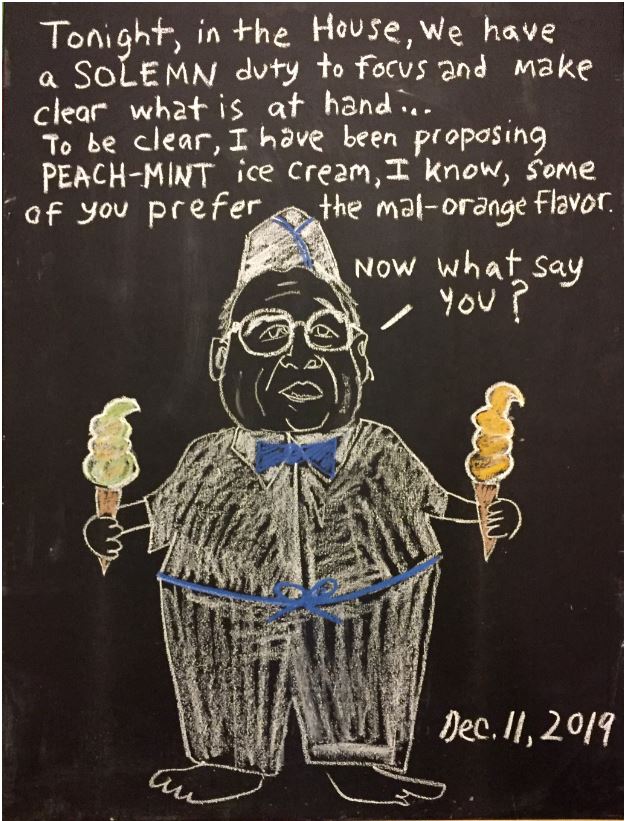 Tonight, in the House, We have
a SOLEMN duty to focus and make
clear what is at hand...
To be clear, I have been proposing
PEACH-MINT ice cream, I know, some
of you prefer the mal-orange flavor.
NOW what say
YOU?
Dec. 11, 2019